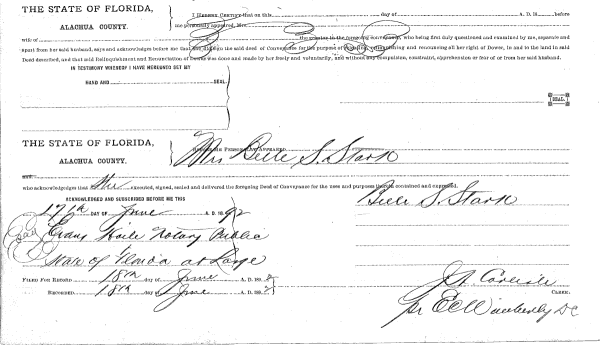 THE STATE OF FLORIDA,
ALACHUA COUNTY.
I HEREBY CERTIFY that on this day of A. D. 18 before
me personally appeared, Mrs.
wife of the grantor in the foregoing conveyance, who being first duly questioned and examined by me, separate and
apart from her said husband, says and acknowledges before me that she signed the said deed of Conveyance for the purpose of relinquishing and renouncing all her right of Dower, in and to the land in said
Deed described, and that said Relinquishment and Renunciation of Dower was done and made by her freely and voluntarily, and without any compulsion, constraint, apprehension or fear of or from her said husband.
IN TESTIMONY WHEREOF I HAVE HEREUNTO SET MY
HAND AND SEAL
SEAL.
THE STATE OF FLORIDA,
ALACHUA COUNTY.
BEFORE ME PERSONALLY APPEARED
Mrs Belle S. Stark
AND
who acknowledges that She executed, signed, sealed and delivered the foregoing Deed of Conveyance for the uses and purposes therein contained and expressed.
ACKNOWLEDGED AND SUBSCRIBED BEFORE ME THIS
Belle S. Stark
17th DAY OF June A. D. 1892
Seal
Evans Haile Notary Public
State of Florida at Large
FILED FOR RECORD 18th day of June A. D. 1892
RECORDED 18th day of June A. D. 189
CLERK.
per E C Wimberly DC